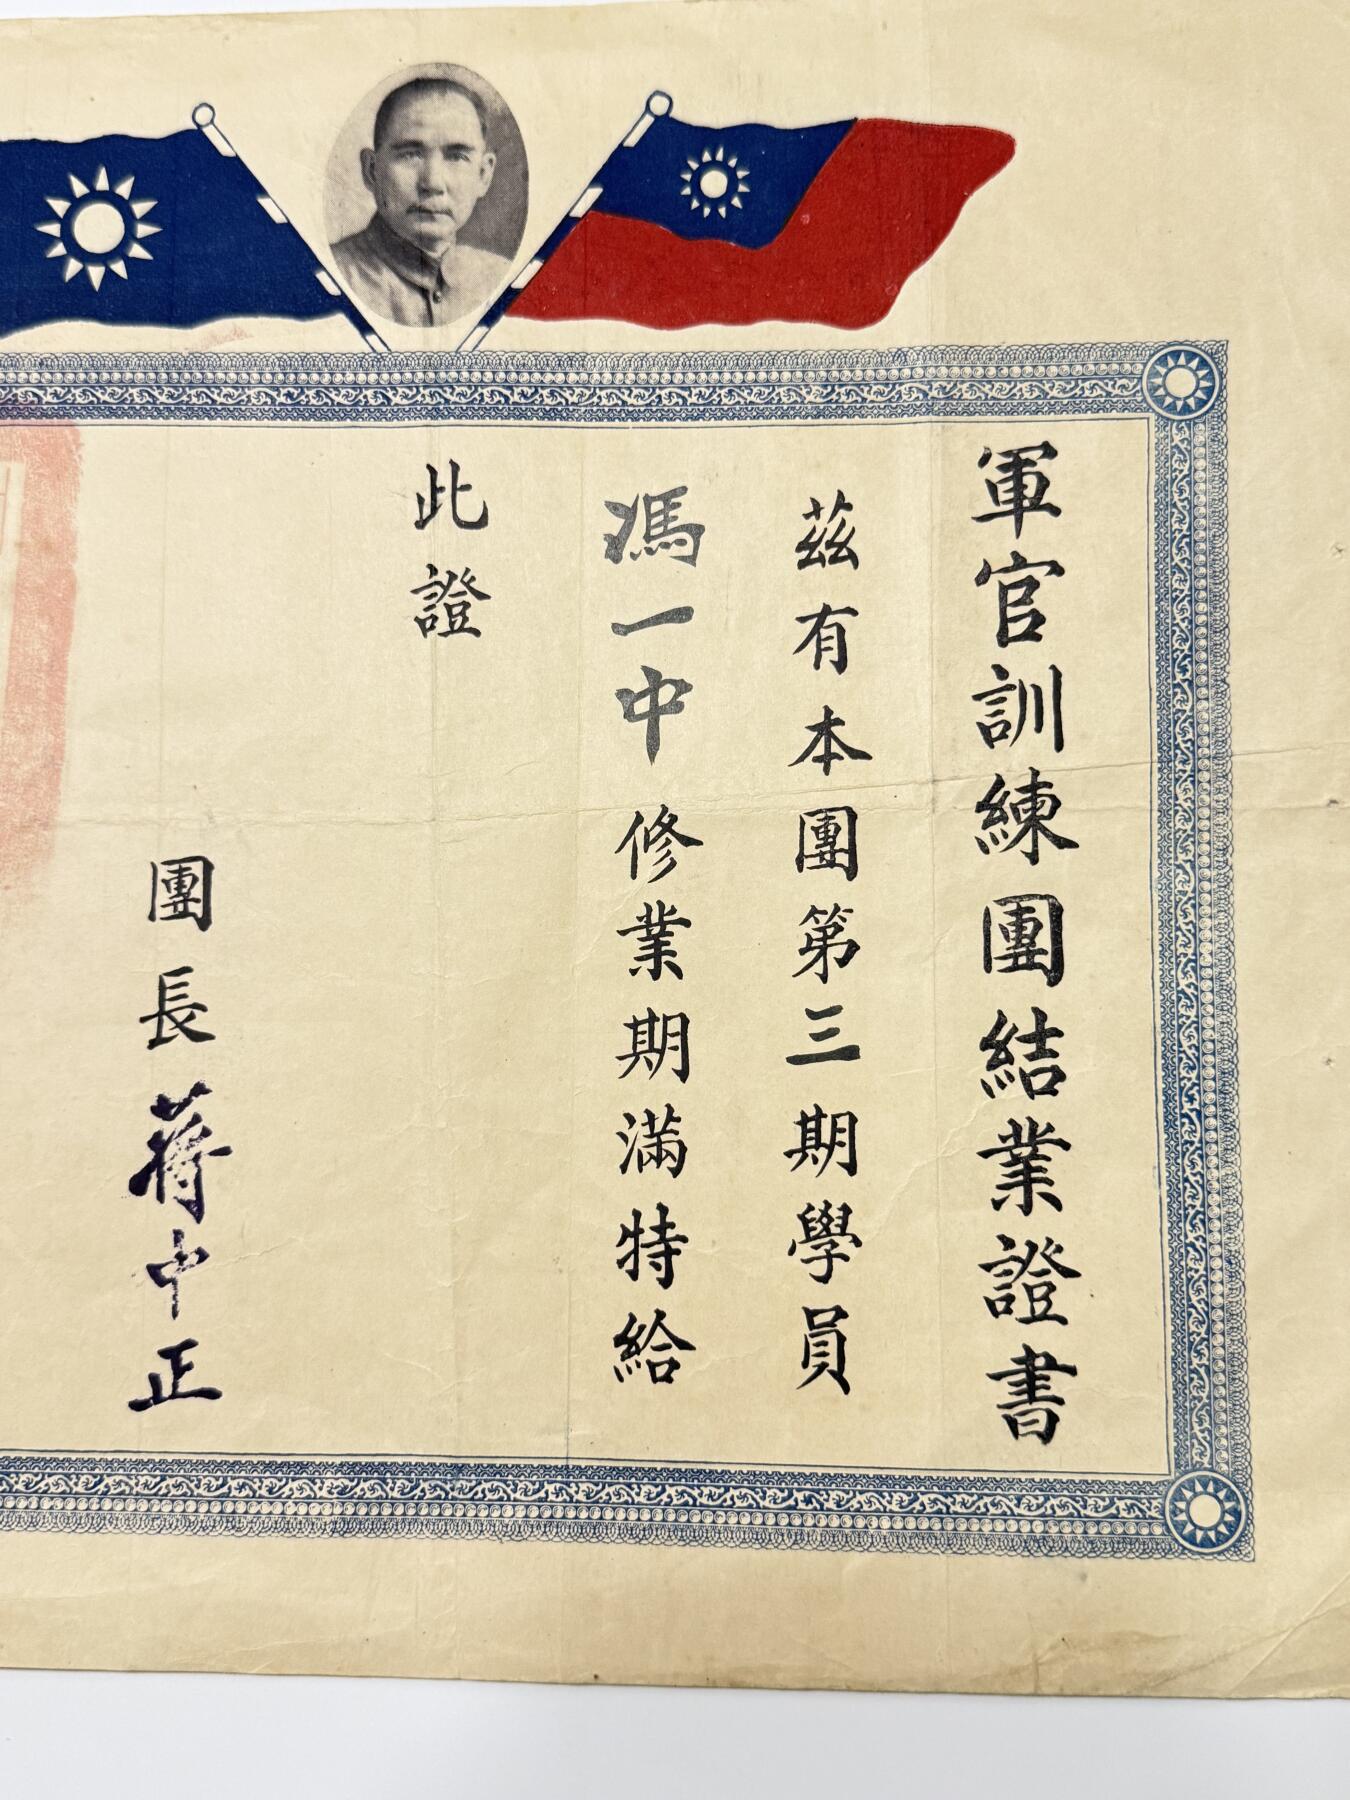 軍官訓練團結業證書
茲有本團第三期學員
馮一中修業期滿特給
此證
團長蔣中正